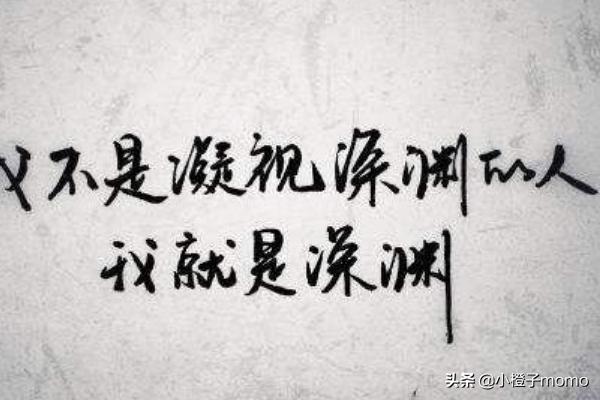 不是凝视深渊的人
我就是深渊
头条 @小橙子momo